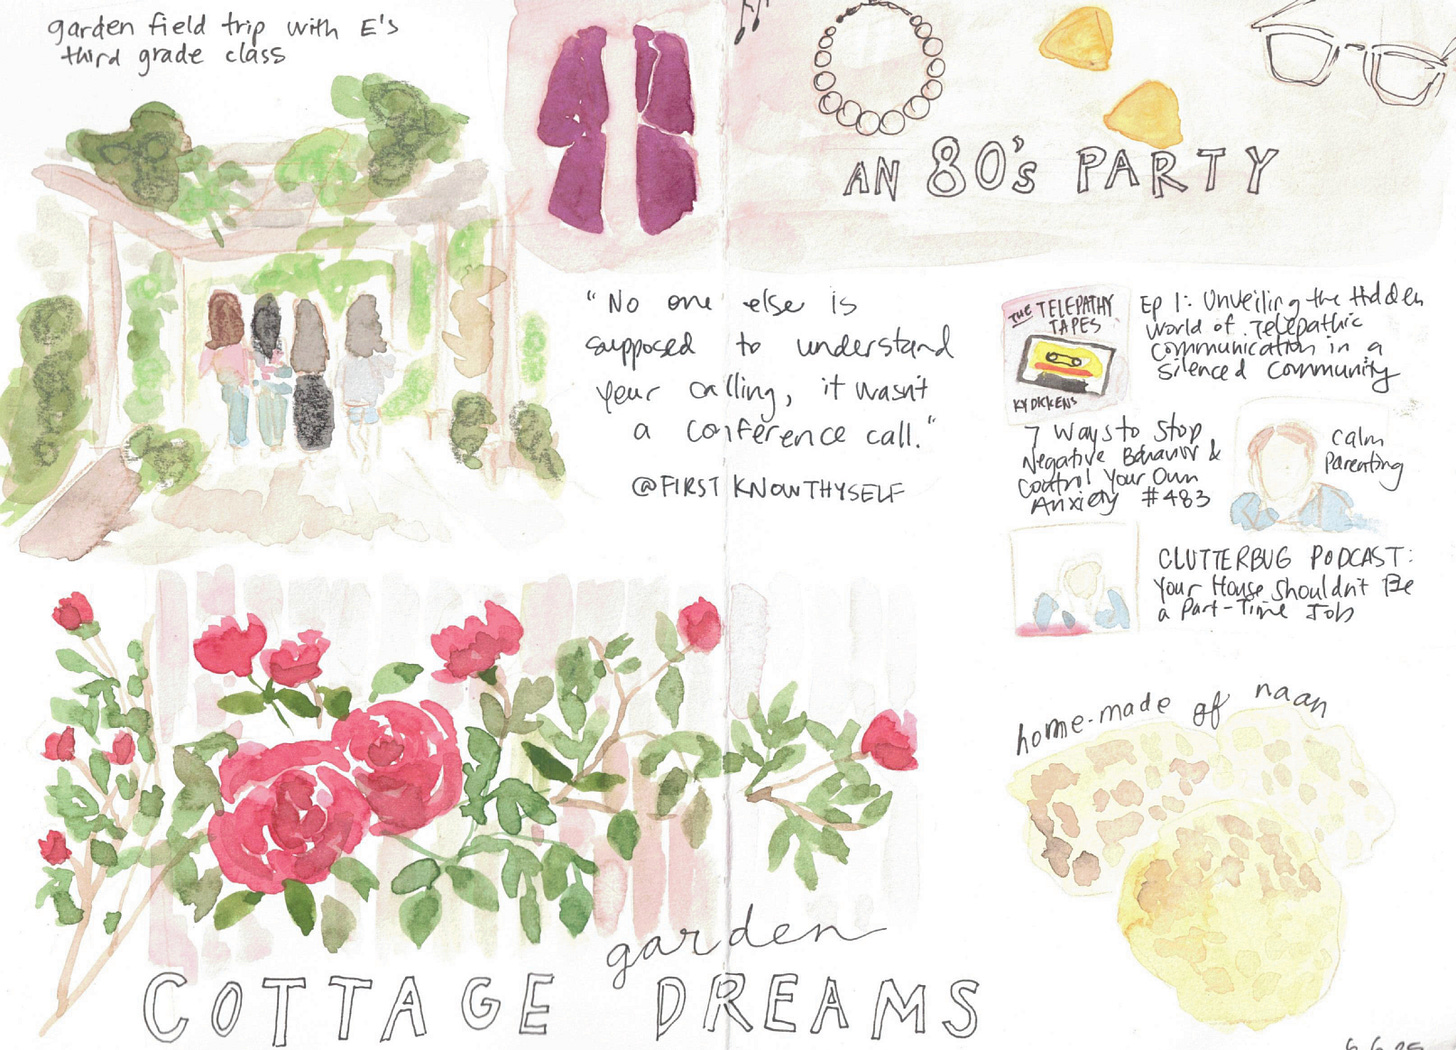 garden field trip with E's
third grade class
AN 80's PARTY
"No one else is
supposed to understand
your calling, it wasn't
a conference call."
@FIRSTKNOWTHYSELF
THE TELEPATHY
TAPES
KY DICKENS
Ep 1: Unveiling the Hidden
World of Telepathic
Communication in a
Silenced Community
7 Ways to Stop
Negative Behavior &
Control Your Own
Anxiety #483
Calm
Parenting
CLUTTERBUG PODCAST:
Your House Shouldn't Be
a Part-Time Job
home-made gf naan
garden
COTTAGE DREAMS